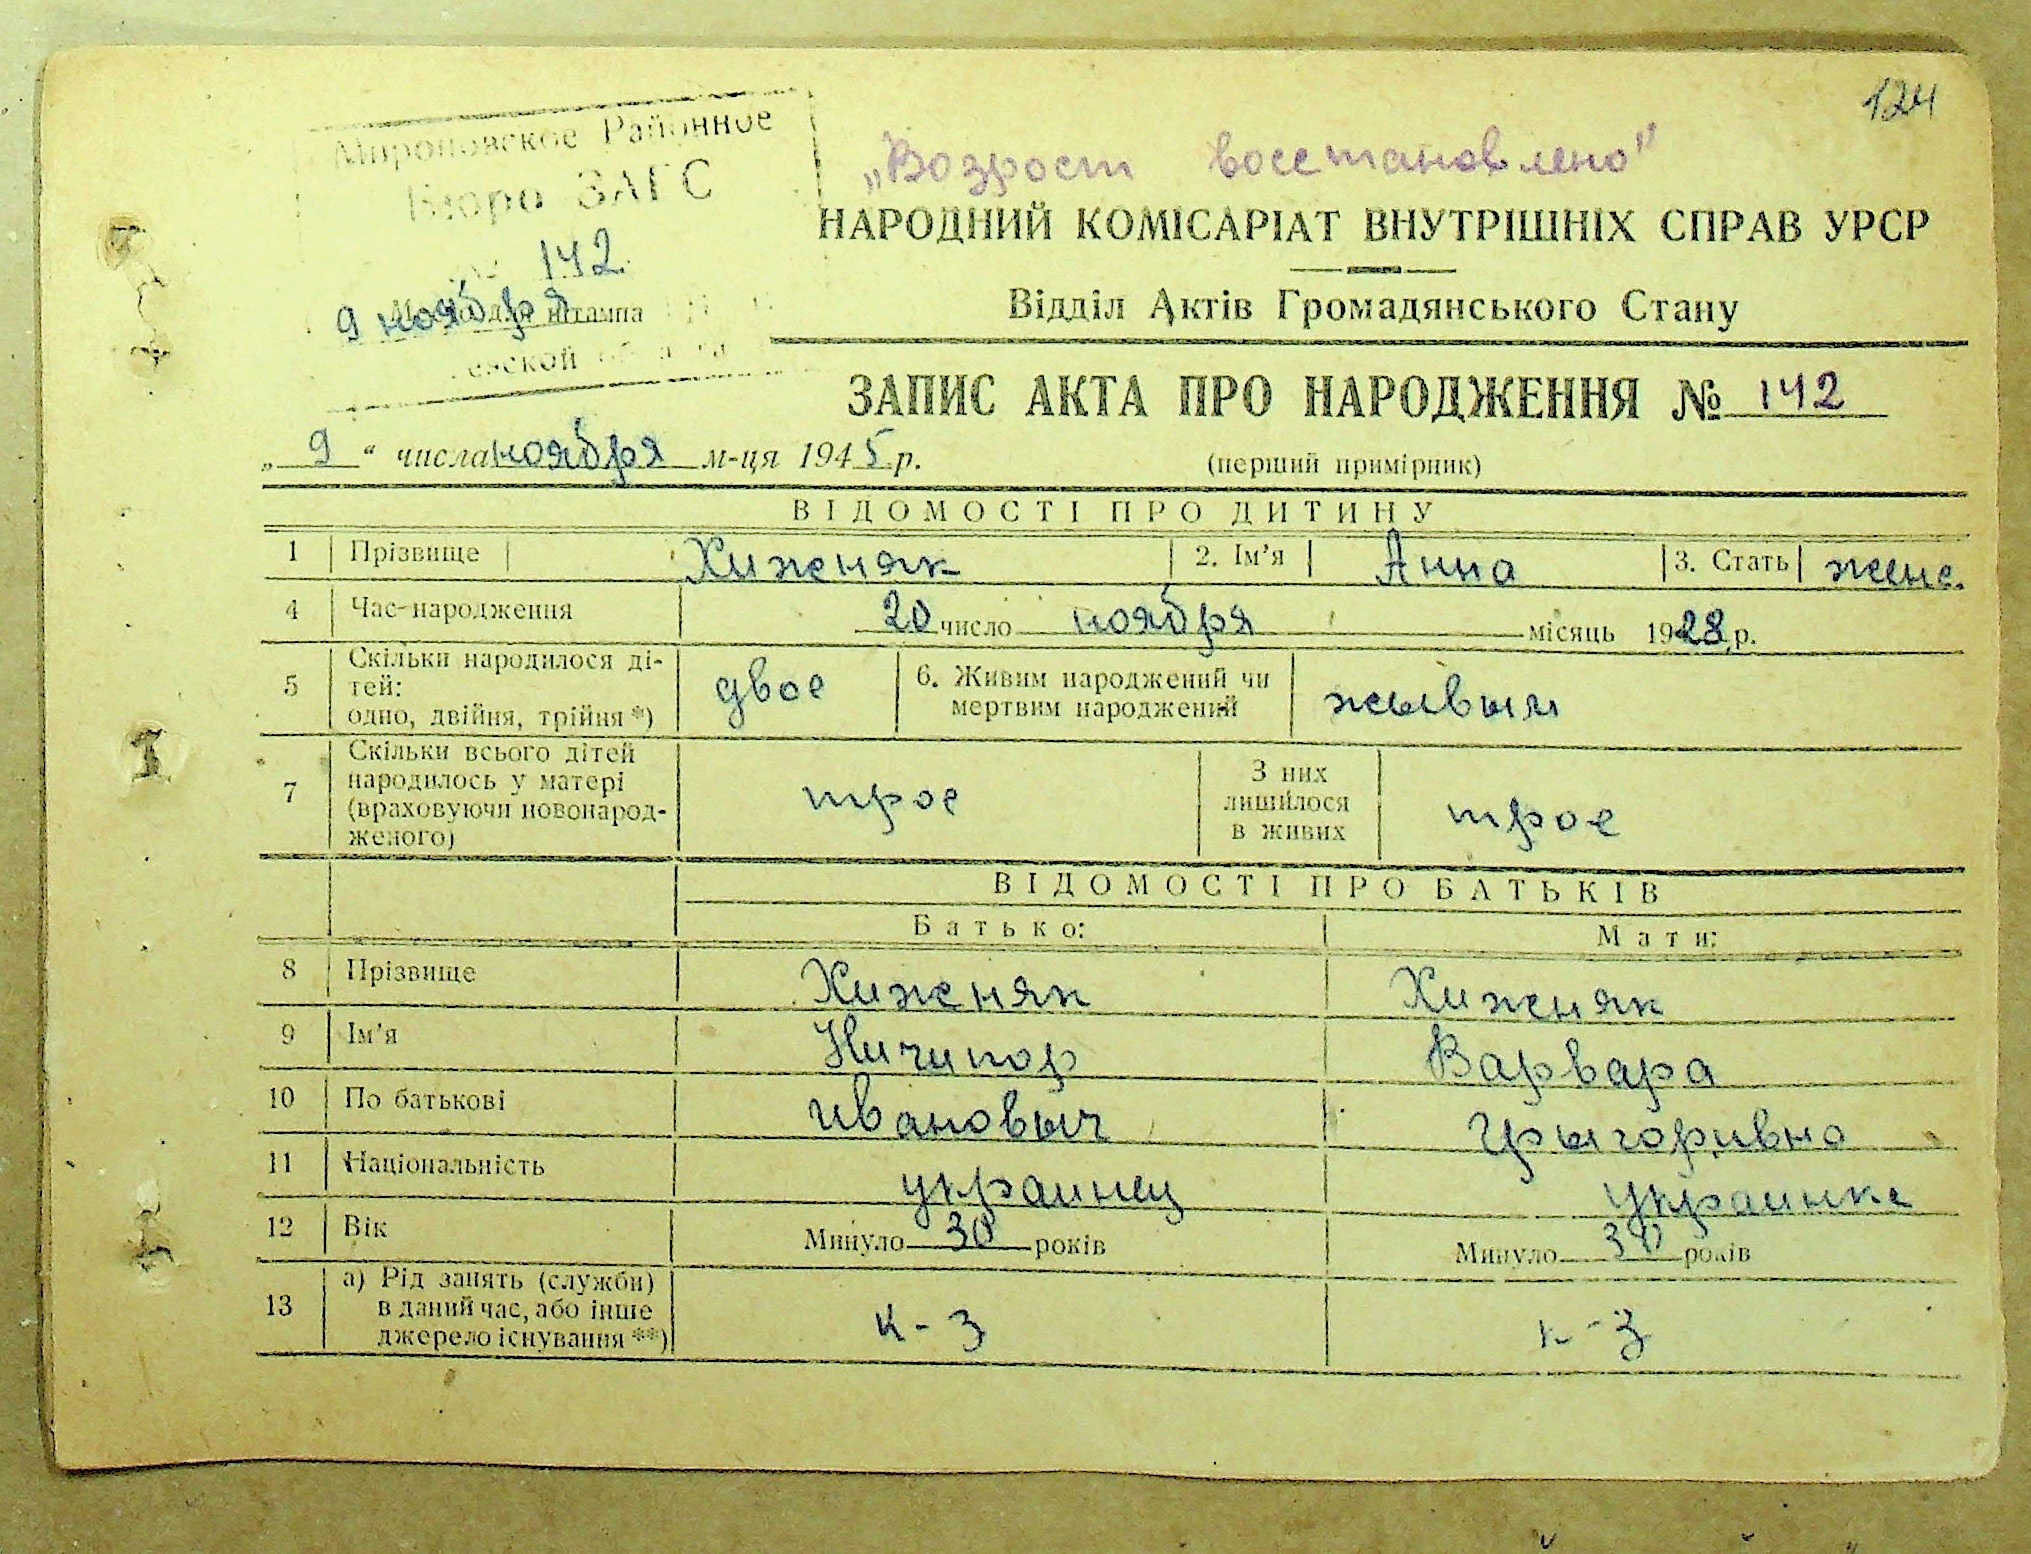 124
Мироновское Районное
Бюро ЗАГС
„Возрост восстановлено"
НАРОДНИЙ КОМІСАРІАТ ВНУТРІШНІХ СПРАВ УРСР
142
Відділ Актів Громадянського Стану
9 ноября штампа
ЗАПИС АКТА ПРО НАРОДЖЕННЯ № 142
„ 9 " числа ноября м-ця 1945 р.
(перший примірник)
ВІДОМОСТІ ПРО ДИТИНУ
1 Прізвище Хиженяк 2. Ім'я Анна 3. Стать женс.
4 Час народження 20 число ноября місяць 1928 р.
5 Скільки народилося ді-
тей:
одно, двійня, трійня *) двое 6. Живим народжений чи
мертвим народжений жывым
7 Скільки всього дітей
народилось у матері
(враховуючи новонарод-
женого) трое З них
лишилося
в живих трое
ВІДОМОСТІ ПРО БАТЬКІВ
Батько: Мати:
8 Прізвище Хиженяк Хиженяк
9 Ім'я Ничипор Варвара
10 По батькові Ивановыч Грыгоривно
11 Національність украинец украинке
12 Вік Минуло 30 років Минуло 30 років
13 а) Рід занять (служби)
в даний час, або інше
джерело існування **) к-з к-з